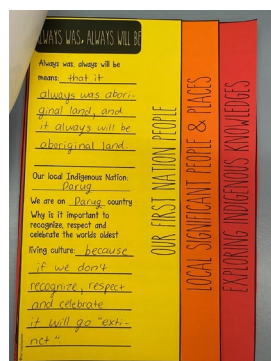 ALWAYS WAS, ALWAYS WILL BE
Always was, always will be
means: that it
always was abori-
ginal land, and
it always will be
aboriginal land.
Our local Indigenous Nation:
Darug
We are on Darug country
Why is it important to
recognize, respect and
celebrate the worlds oldest
living culture: because
if we don't
recognize, respect
and celebrate
it will go "exti-
nct".
OUR FIRST NATION PEOPLE
LOCAL SIGNIFICANT PEOPLE & PLACES
EXPLORING INDIGENOUS KNOWLEDGES